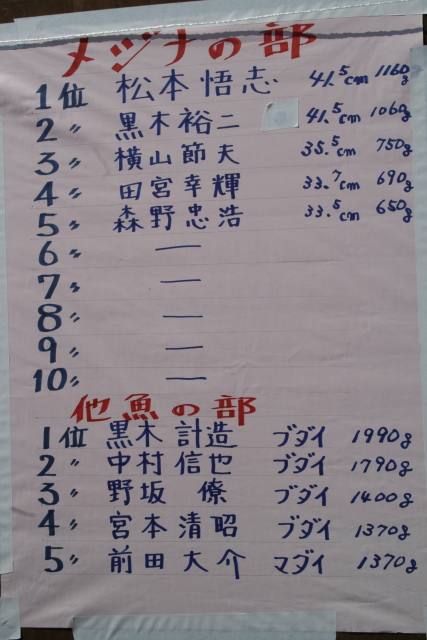 メジナの部
1位 松本悟志 41.5cm 1160g
2〃 黒木裕二 41.5cm 1060g
3〃 横山節夫 35.5cm 750g
4〃 田宮幸輝 33.7cm 690g
5〃 森野忠浩 33.5cm 650g
6〃 ―
7〃 ―
8〃 ―
9〃 ―
10〃 ―
他魚の部
1位 黒木計造 ブダイ 1990g
2〃 中村信也 ブダイ 1790g
3〃 野坂 僚 ブダイ 1400g
4〃 宮本清昭 ブダイ 1370g
5〃 前田大介 マダイ 1370g